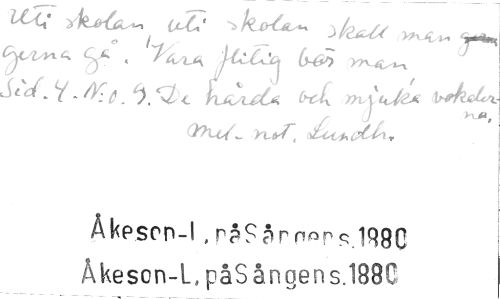 Uti skolan, uti skolan skall man
gerna gå. Vara flitig bör man
Sid. 4. N:o. 9. De hårda och mjuka vokaler-
na.
Mel- not. Lundh.
Åkeson-L, påSångens.1880
Åkeson-L, påSångens.1880